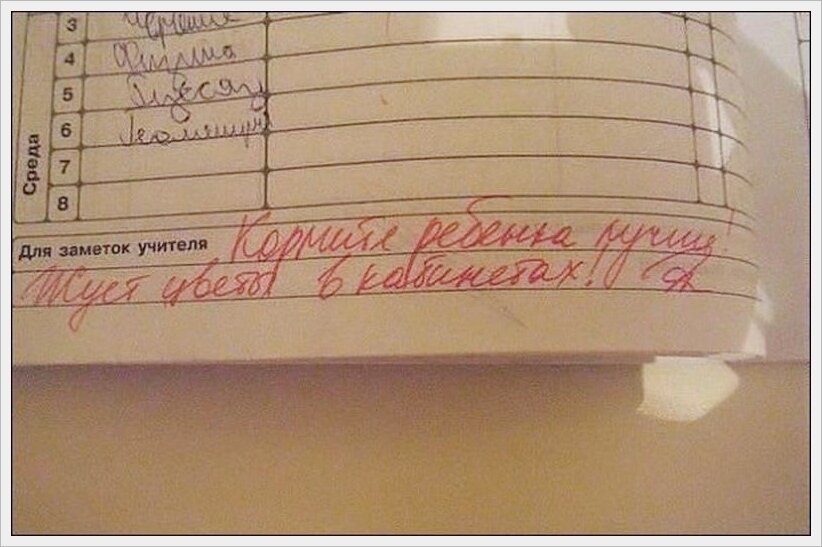 Среда
3 черчение
4 Физика
5 Русский
6 Геометрия
7
8
Для заметок учителя Кормите ребенка лучше!
Жует цветы в кабинетах!